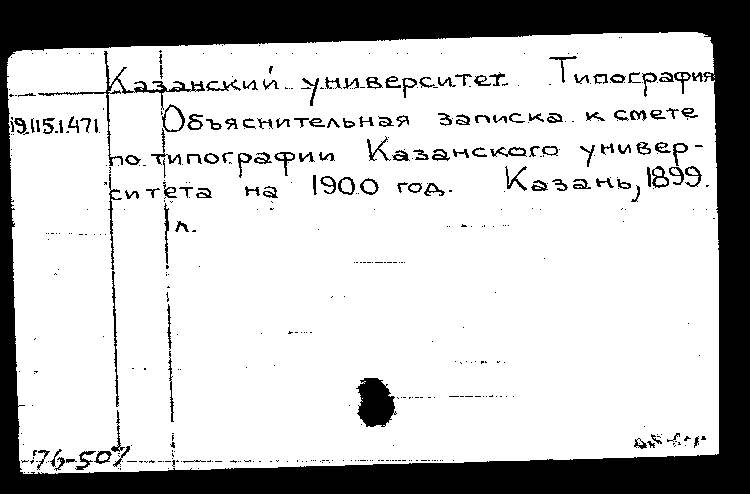 Казанский университет Типография
19.115.1.471 Объяснительная записка к смете
по типографии Казанского универ-
ситета на 1900 год. Казань, 1899.
1 л.
76-507